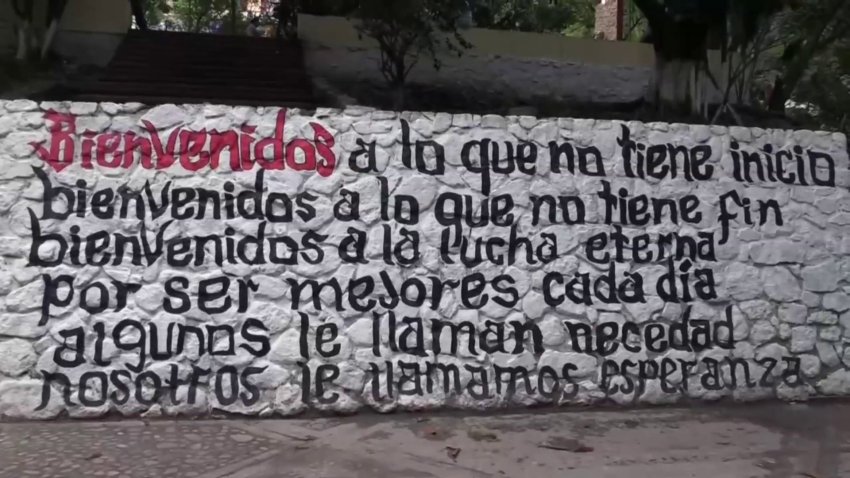 Bienvenidos a lo que no tiene inicio
bienvenidos a lo que no tiene fin
bienvenidos a la lucha eterna
por ser mejores cada día
algunos le llaman necedad
nosotros le llamamos esperanza